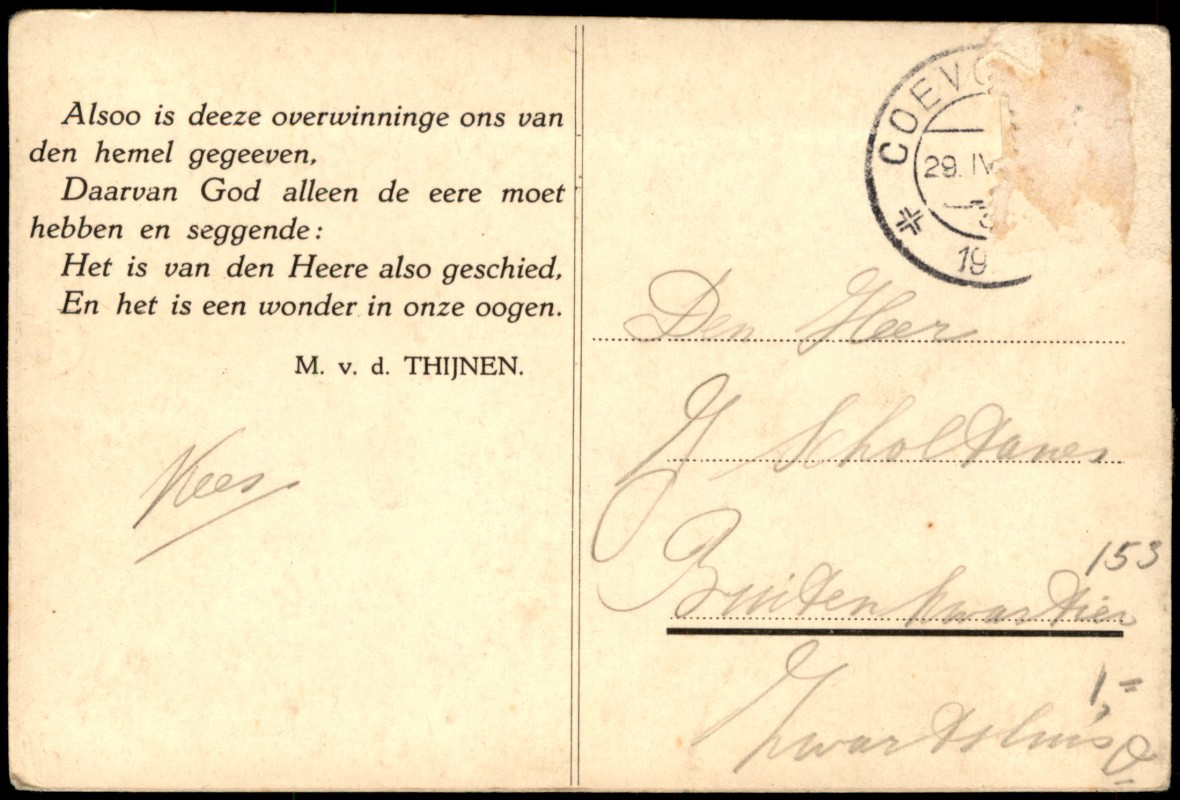 Alsoo is deeze overwinninge ons van
den hemel gegeeven,
Daarvan God alleen de eere moet
hebben en seggende:
Het is van den Heere also geschied,
En het is een wonder in onze oogen.
M. v. d. THIJNEN.
Kees
COEVO
29. IV
19
Den Heer
Scholtanes
153
Buitenkwartier
1,=
Zwartsluis